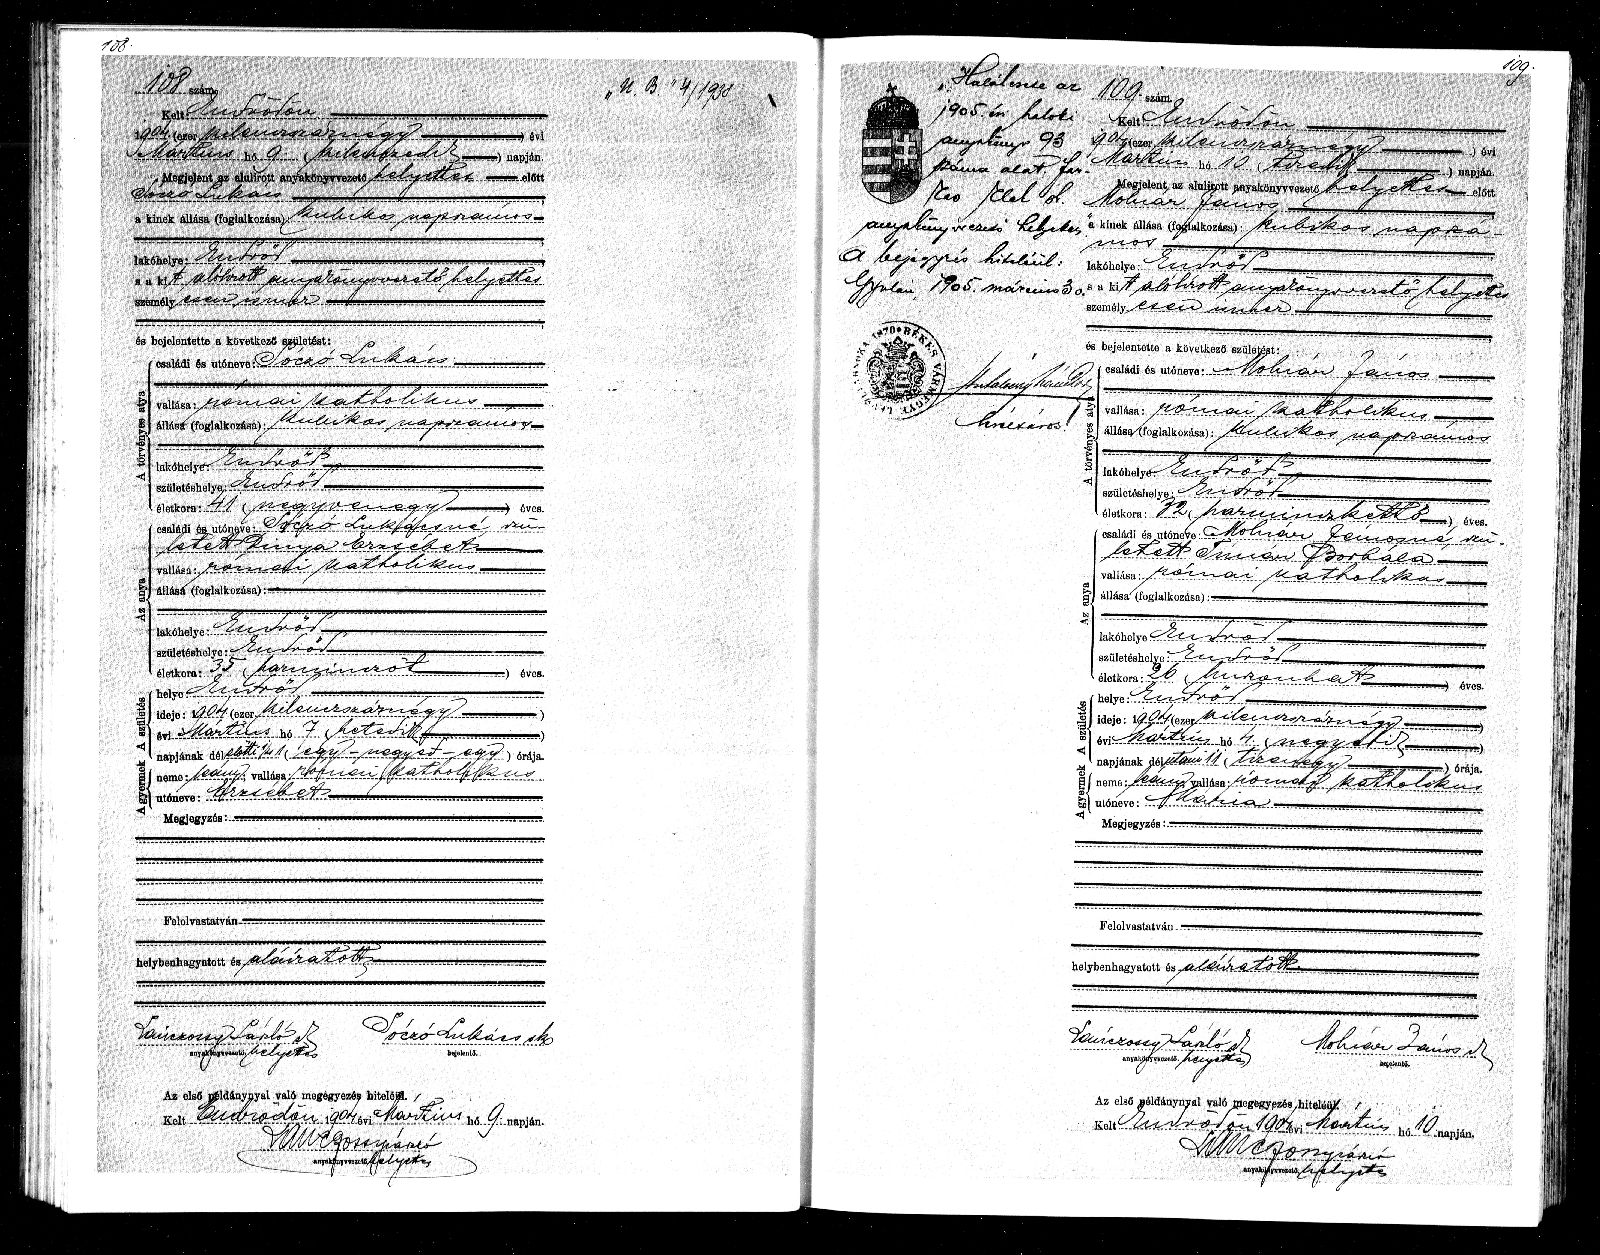 108.
108 szám.
"U. B" 4/1920
Kelt Endrődön
1904 (ezer kilenczszáznégy) évi
Mártius hó 9 (kilenczedik) napján.
Megjelent az alulirott anyakönyvvezető helyettes előtt
Sóczó Lukács
a kinek állása (foglalkozása): kubikos napszámos
lakóhelye: Endrőd
s a kit alólirott anyakönyvvezető helyettes
személyesen ismer
és bejelentette a következő születést:
A törvényes atya
családi és utóneve: Sóczó Lukács
vallása: római katholikus
állása (foglalkozása): kubikos napszámos
lakóhelye: Endrőd
születéshelye: Endrőd
életkora: 41 (negyvenegy) éves.
Az anya
családi és utóneve: Sóczó Lukácsné, szü-
letett Dinya Erzsébet
vallása: római katholikus
állása (foglalkozása):
lakóhelye: Endrőd
születéshelye: Endrőd
életkora: 35 (harminczöt) éves.
A gyermek A születés
helye: Endrőd
ideje: 1904 (ezer kilenczszáznégy)
évi Mártius hó 7 (hetedik)
napjának délelőtti 1/4 1 (egy-negyed-egy) órája.
neme: leány; vallása: római katholikus
utóneve: Erzsébet
Megjegyzés:
Felolvastatván
helybenhagyatott és aláiratott
Lánczossy László sk Sóczó Lukács sk
anyakönyvvezető helyettes bejelentő.
Az első példánynyal való megegyezés hiteléül.
Kelt Endrődön 1904 évi Mártius hó 9 napján.
anyakönyvvezető helyettes
109.
"Halálesete az
1905. év haloti
anyakönyv 93
száma alatt.
anyakönyvvezető helyettes"
A bejegyzés hiteléül:
Gyulán, 1905. márczius 30.
BÉKÉS VÁRMEGYE LEVÉLTÁRNOKA 1870
109. szám.
Kelt Endrődön
1904 (ezer kilenczszáznégy) évi
Mártius hó 10 (tizedik) napján.
Megjelent az alulirott anyakönyvvezető helyettes előtt
Molnár János
a kinek állása (foglalkozása): kubikos napszá-
mos
lakóhelye: Endrőd
s a kit alólirott anyakönyvvezető helyettes
személyesen ismer
és bejelentette a következő születést:
A törvényes atya
családi és utóneve: Molnár János
vallása: római katholikus
állása (foglalkozása): kubikos napszámos
lakóhelye: Endrőd
születéshelye: Endrőd
életkora: 32 (harminczkettő) éves.
Az anya
családi és utóneve: Molnár Jánosné, szü-
letett Timár Borbála
vallása: római katholikus
állása (foglalkozása):
lakóhelye: Endrőd
születéshelye: Endrőd
életkora: 26 (huszonhat) éves.
A gyermek A születés
helye: Endrőd
ideje: 1904 (ezer kilenczszáznégy)
évi Mártius hó 4 (negyedik)
napjának délutáni 11 (tizenegy) órája.
neme: leány; vallása: római katholikus
utóneve: Mária
Megjegyzés:
Felolvastatván
helybenhagyatott és aláiratott.
Lánczossy László sk Molnár János sk
anyakönyvvezető helyettes bejelentő.
Az első példánynyal való megegyezés hiteléül.
Kelt Endrődön 1904 évi Mártius hó 10 napján.
anyakönyvvezető helyettes